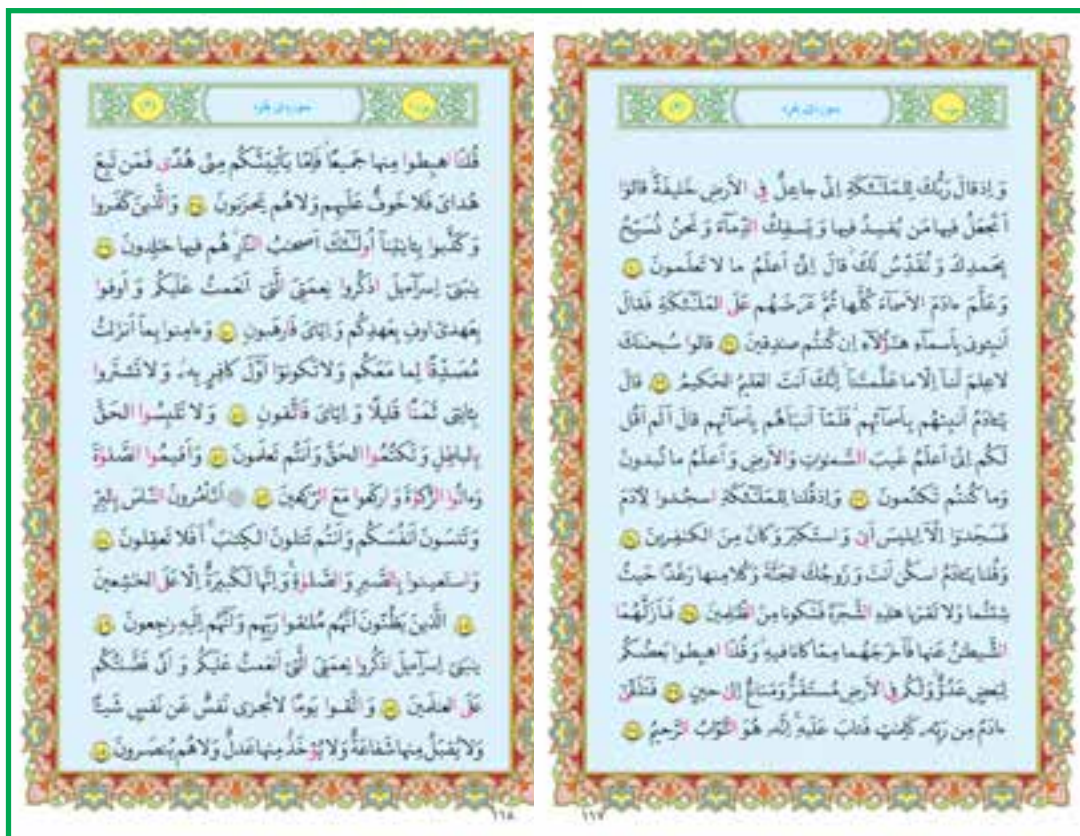 سوره‌ی بقره
وَ اِذ قالَ رَبُّكَ لِلمَلٰٓئِكَةِ اِنّى جاعِلٌ فِى الاَرضِ خَليفَةً قالوٓا
اَتَجعَلُ فيها مَن يُفسِدُ فيها وَ يَسفِكُ الدِّمآءَ وَ نَحنُ نُسَبِّحُ
بِحَمدِكَ وَ نُقَدِّسُ لَكَ قالَ اِنّىٓ اَعلَمُ ما لا تَعلَمونَ
وَ عَلَّمَ ءادَمَ الاَسمآءَ كُلَّها ثُمَّ عَرَضَهُم عَلَى المَلٰٓئِكَةِ فَقالَ
اَنبِـٔونى بِاَسمآءِ هٰٓؤُلآءِ اِن كُنتُم صٰدِقينَ قالوا سُبحٰنَكَ
لا عِلمَ لَنآ اِلّا ما عَلَّمتَنآ اِنَّكَ اَنتَ العَليمُ الحَكيمُ قالَ
يٰٓـٔادَمُ اَنبِئهُم بِاَسمآئِهِم فَلَمّآ اَنبَاَهُم بِاَسمآئِهِم قالَ اَلَم اَقُل
لَكُم اِنّىٓ اَعلَمُ غَيبَ السَّمٰوٰتِ وَ الاَرضِ وَ اَعلَمُ ما تُبدونَ
وَ ما كُنتُم تَكتُمونَ وَ اِذ قُلنا لِلمَلٰٓئِكَةِ اسجُدوا لِـٔادَمَ
فَسَجَدوٓا اِلّآ اِبليسَ اَبىٰ وَ استَكبَرَ وَ كانَ مِنَ الكٰفِرينَ
وَ قُلنا يٰٓـٔادَمُ اسكُن اَنتَ وَ زَوجُكَ الجَنَّةَ وَ كُلا مِنها رَغَدًا حَيثُ
شِئتُما وَ لا تَقرَبا هٰذِهِ الشَّجَرَةَ فَتَكونا مِنَ الظّٰلِمينَ فَاَزَلَّهُمَا
الشَّيطٰنُ عَنها فَاَخرَجَهُما مِمّا كانا فيهِ وَ قُلنَا اهبِطوا بَعضُكُم
لِبَعضٍ عَدُوٌّ وَ لَكُم فِى الاَرضِ مُستَقَرٌّ وَ مَتاعٌ اِلىٰ حينٍ فَتَلَقّىٰٓ
ءادَمُ مِن رَبِّهٖ كَلِمٰتٍ فَتابَ عَلَيهِ اِنَّهٗ هُوَ التَّوّابُ الرَّحيمُ
١١٧
سوره‌ی بقره
قُلنَا اهبِطوا مِنها جَميعًا فَاِمّا يَأتِيَنَّكُم مِنّى هُدًى فَمَن تَبِعَ
هُداىَ فَلا خَوفٌ عَلَيهِم وَ لا هُم يَحزَنونَ وَ الَّذينَ كَفَروا
وَ كَذَّبوا بِـٔايٰتِنآ اُولٰٓئِكَ اَصحٰبُ النّارِ هُم فيها خٰلِدونَ
يٰبَنىٓ اِسرآءيلَ اذكُروا نِعمَتِىَ الَّتىٓ اَنعَمتُ عَلَيكُم وَ اَوفوا
بِعَهدىٓ اوفِ بِعَهدِكُم وَ اِيّاىَ فَارهَبونِ وَ ءامِنوا بِمآ اَنزَلتُ
مُصَدِّقًا لِما مَعَكُم وَ لا تَكونوٓا اَوَّلَ كافِرٍ بِهٖ وَ لا تَشتَروا
بِـٔايٰتى ثَمَنًا قَليلًا وَ اِيّاىَ فَاتَّقونِ وَ لا تَلبِسُوا الحَقَّ
بِالباطِلِ وَ تَكتُمُوا الحَقَّ وَ اَنتُم تَعلَمونَ وَ اَقيمُوا الصَّلوٰةَ
وَ ءاتُوا الزَّكوٰةَ وَ اركَعوا مَعَ الرّٰكِعينَ اَتَأمُرونَ النّاسَ بِالبِرِّ
وَ تَنسَونَ اَنفُسَكُم وَ اَنتُم تَتلونَ الكِتٰبَ اَفَلا تَعقِلونَ
وَ استَعينوا بِالصَّبرِ وَ الصَّلوٰةِ وَ اِنَّها لَكَبيرَةٌ اِلّا عَلَى الخٰشِعينَ
الَّذينَ يَظُنّونَ اَنَّهُم مُلٰقوا رَبِّهِم وَ اَنَّهُم اِلَيهِ رٰجِعونَ
يٰبَنىٓ اِسرآءيلَ اذكُروا نِعمَتِىَ الَّتىٓ اَنعَمتُ عَلَيكُم وَ اَنّى فَضَّلتُكُم
عَلَى العٰلَمينَ وَ اتَّقوا يَومًا لا تَجزى نَفسٌ عَن نَفسٍ شَيـًٔا
وَ لا يُقبَلُ مِنها شَفاعَةٌ وَ لا يُؤخَذُ مِنها عَدلٌ وَ لا هُم يُنصَرونَ
١١٨